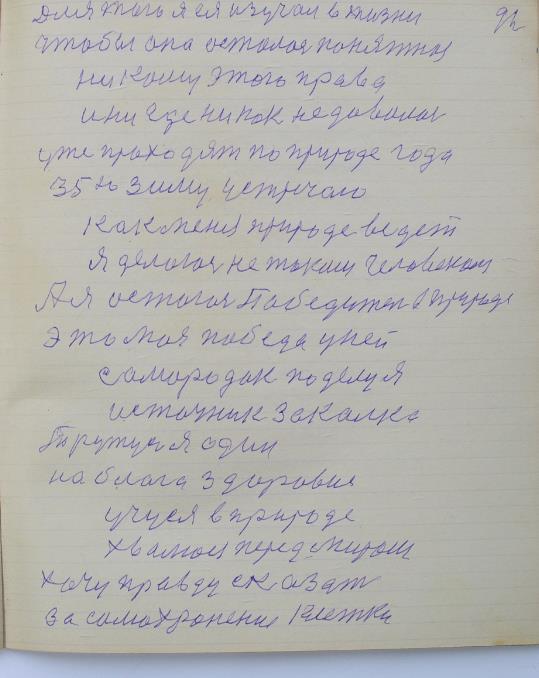 92
Для этого я ся изучал в жизни
чтобы она осталося понятны
никому этого права
и нигде ни как недавалос
уже проходят по природе года
35ю зиму устречаю
как меня природе ведет
я делался не таким человеком
А я остался Победител в природе
Это моя победа у ней
самородак поделу я
источник закалка
Тружуся я один
на блага здоровие
учуся в природе
хвалюся перед миром
хочу правду сказат
за самохронение клетка